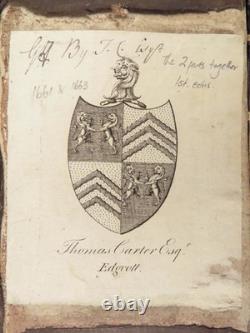 By T. C.
The 2 parts together
1st. edns
1661 & 1663
Thomas Carter Esqr.
Edgcott.
© ebay